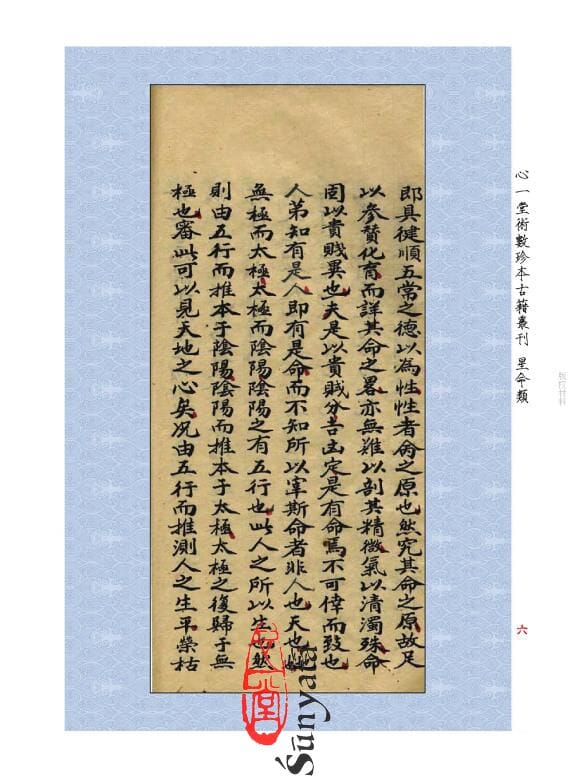 心一堂術數珍本古籍叢刊 星命類
六
版权材料
即具健順五常之德以為性性者命之原也然究其命之原故足
以參贊化育而詳其命之畧亦無難以剖其精微氣以清濁殊命
固以貴賤異也夫是以貴賤分吉凶定是有命焉不可倖而致也
人第知有是人即有是命而不知所以宰斯命者非人也天也
無極而太極太極而陰陽陰陽之有五行也此人之所以生也然
則由五行而推本于陰陽陰陽而推本于太極太極之復歸于無
極也審此可以見天地之心矣况由五行而推測人之生平榮枯
心一堂
Śūnyatā